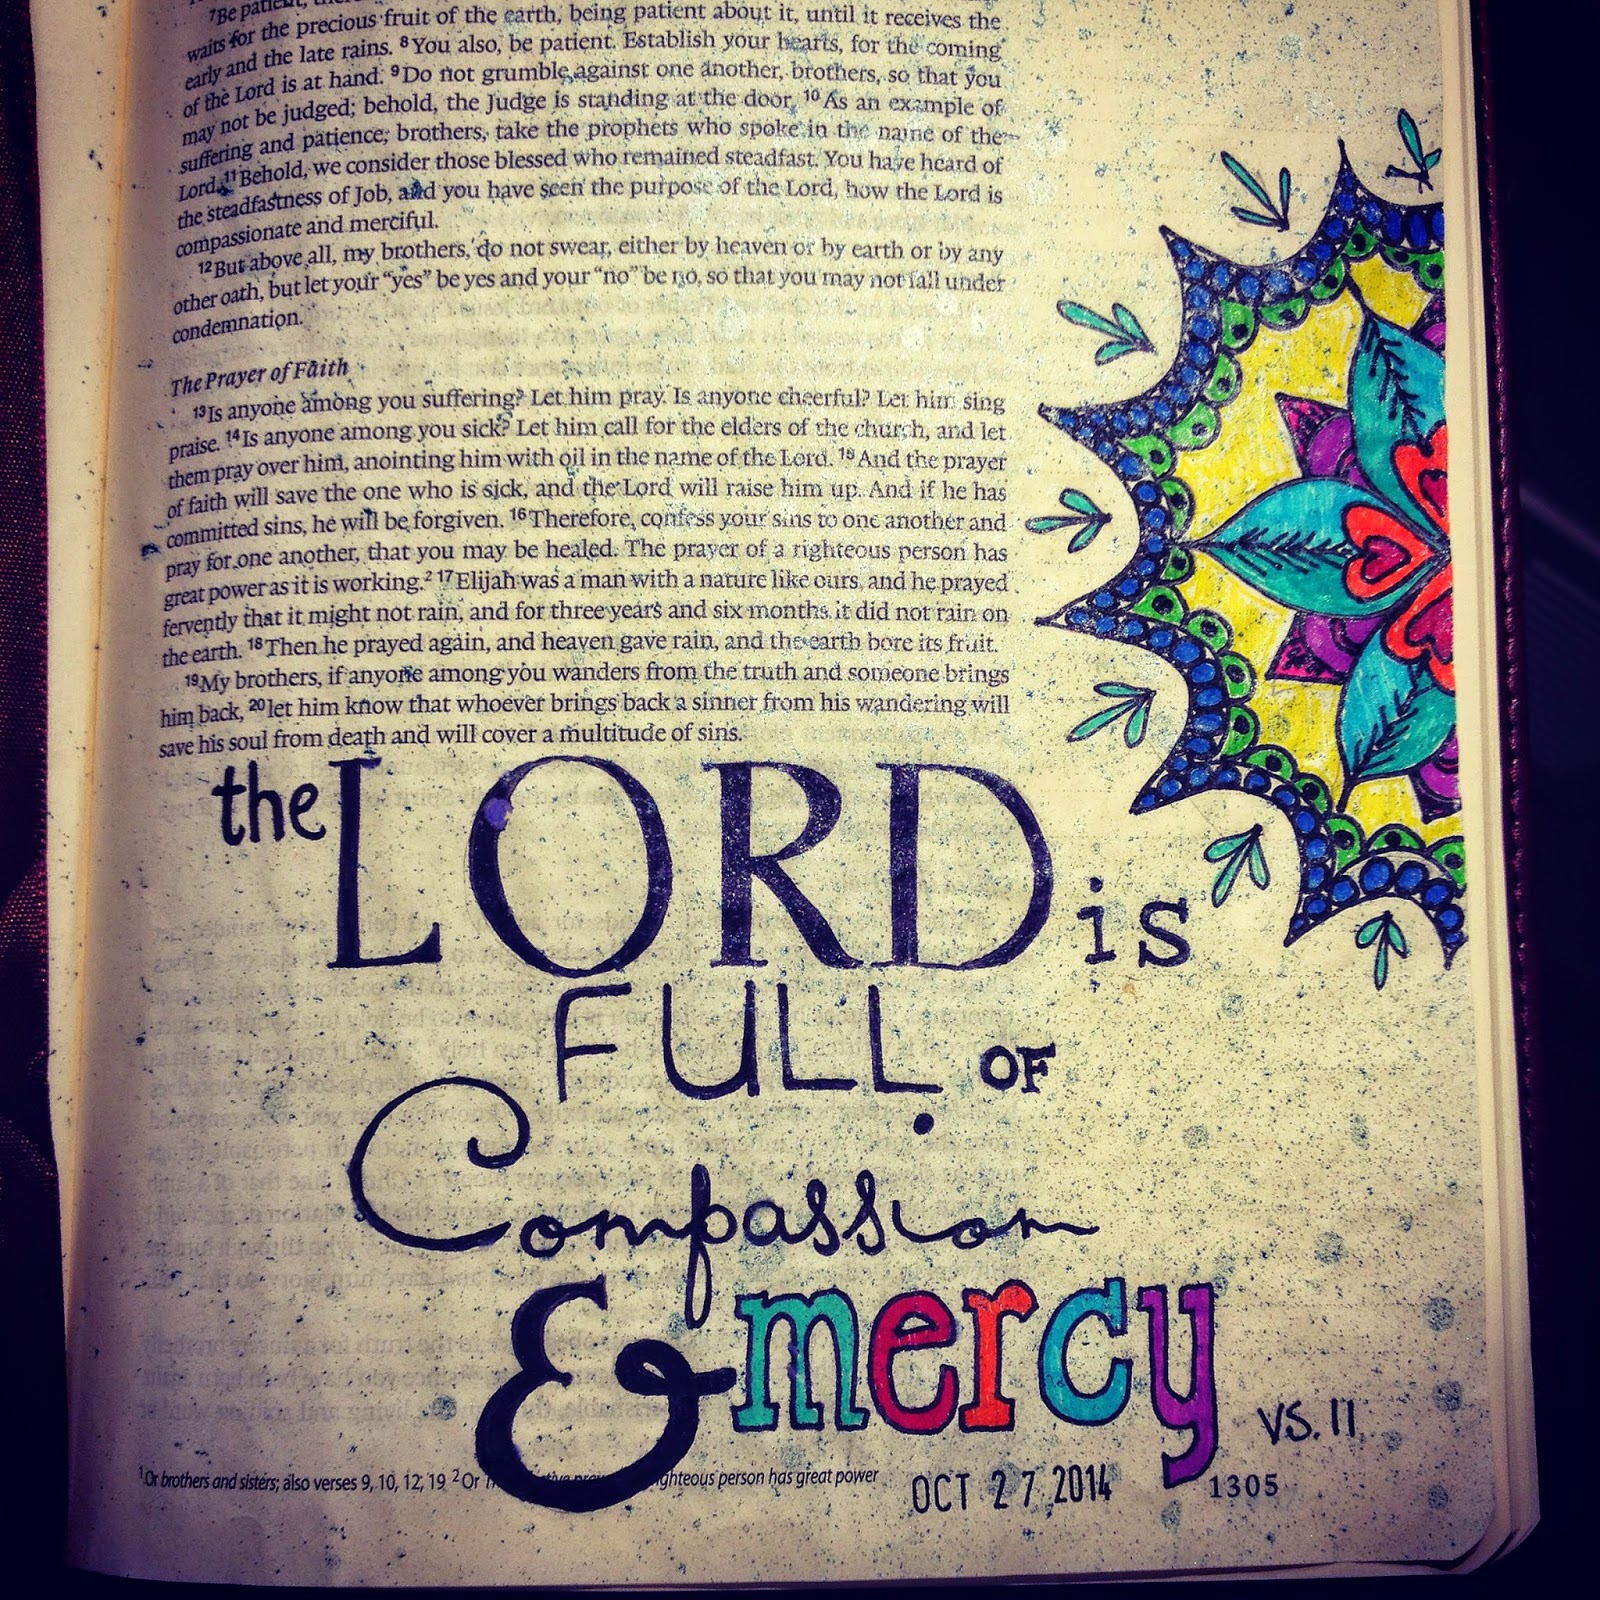 7Be patient,
waits for the precious fruit of the earth, being patient about it, until it receives the
early and the late rains. 8You also, be patient. Establish your hearts, for the coming
of the Lord is at hand. 9Do not grumble against one another, brothers, so that you
may not be judged; behold, the Judge is standing at the door. 10As an example of
suffering and patience, brothers, take the prophets who spoke in the name of the
Lord. 11Behold, we consider those blessed who remained steadfast. You have heard of
the steadfastness of Job, and you have seen the purpose of the Lord, how the Lord is
compassionate and merciful.
12But above all, my brothers, do not swear, either by heaven or by earth or by any
other oath, but let your “yes” be yes and your “no” be no, so that you may not fall under
condemnation.
The Prayer of Faith
13Is anyone among you suffering? Let him pray. Is anyone cheerful? Let him sing
praise. 14Is anyone among you sick? Let him call for the elders of the church, and let
them pray over him, anointing him with oil in the name of the Lord. 15And the prayer
of faith will save the one who is sick, and the Lord will raise him up. And if he has
committed sins, he will be forgiven. 16Therefore, confess your sins to one another and
pray for one another, that you may be healed. The prayer of a righteous person has
great power as it is working.2 17Elijah was a man with a nature like ours, and he prayed
fervently that it might not rain, and for three years and six months it did not rain on
the earth. 18Then he prayed again, and heaven gave rain, and the earth bore its fruit.
19My brothers, if anyone among you wanders from the truth and someone brings
him back, 20let him know that whoever brings back a sinner from his wandering will
save his soul from death and will cover a multitude of sins.
the LORD is
FULL OF
Compassion
& mercy
VS. 11
1Or brothers and sisters; also verses 9, 10, 12, 19 2Or righteous person has great power
OCT 27 2014
1305